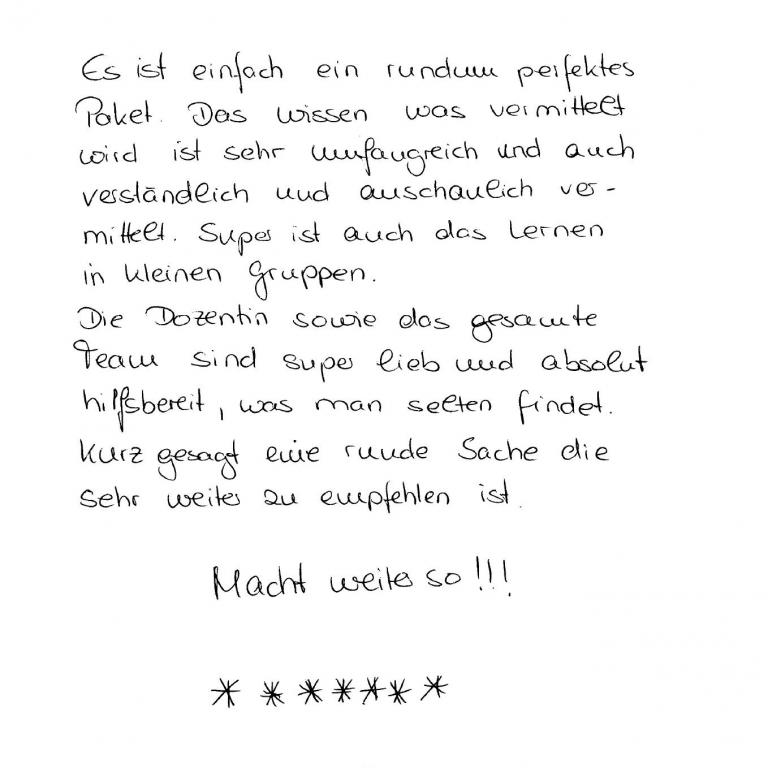 Es ist einfach ein rundum perfektes
Paket. Das wissen was vermittelt
wird ist sehr umfangreich und auch
verständlich und anschaulich ver-
mittelt. Super ist auch das Lernen
in kleinen Gruppen.
Die Dozentin sowie das gesamte
Team sind super lieb und absolut
hilfsbereit, was man selten findet.
Kurz gesagt eine runde Sache die
sehr weiter zu empfehlen ist.
Macht weiter so !!!
* * * * * * *